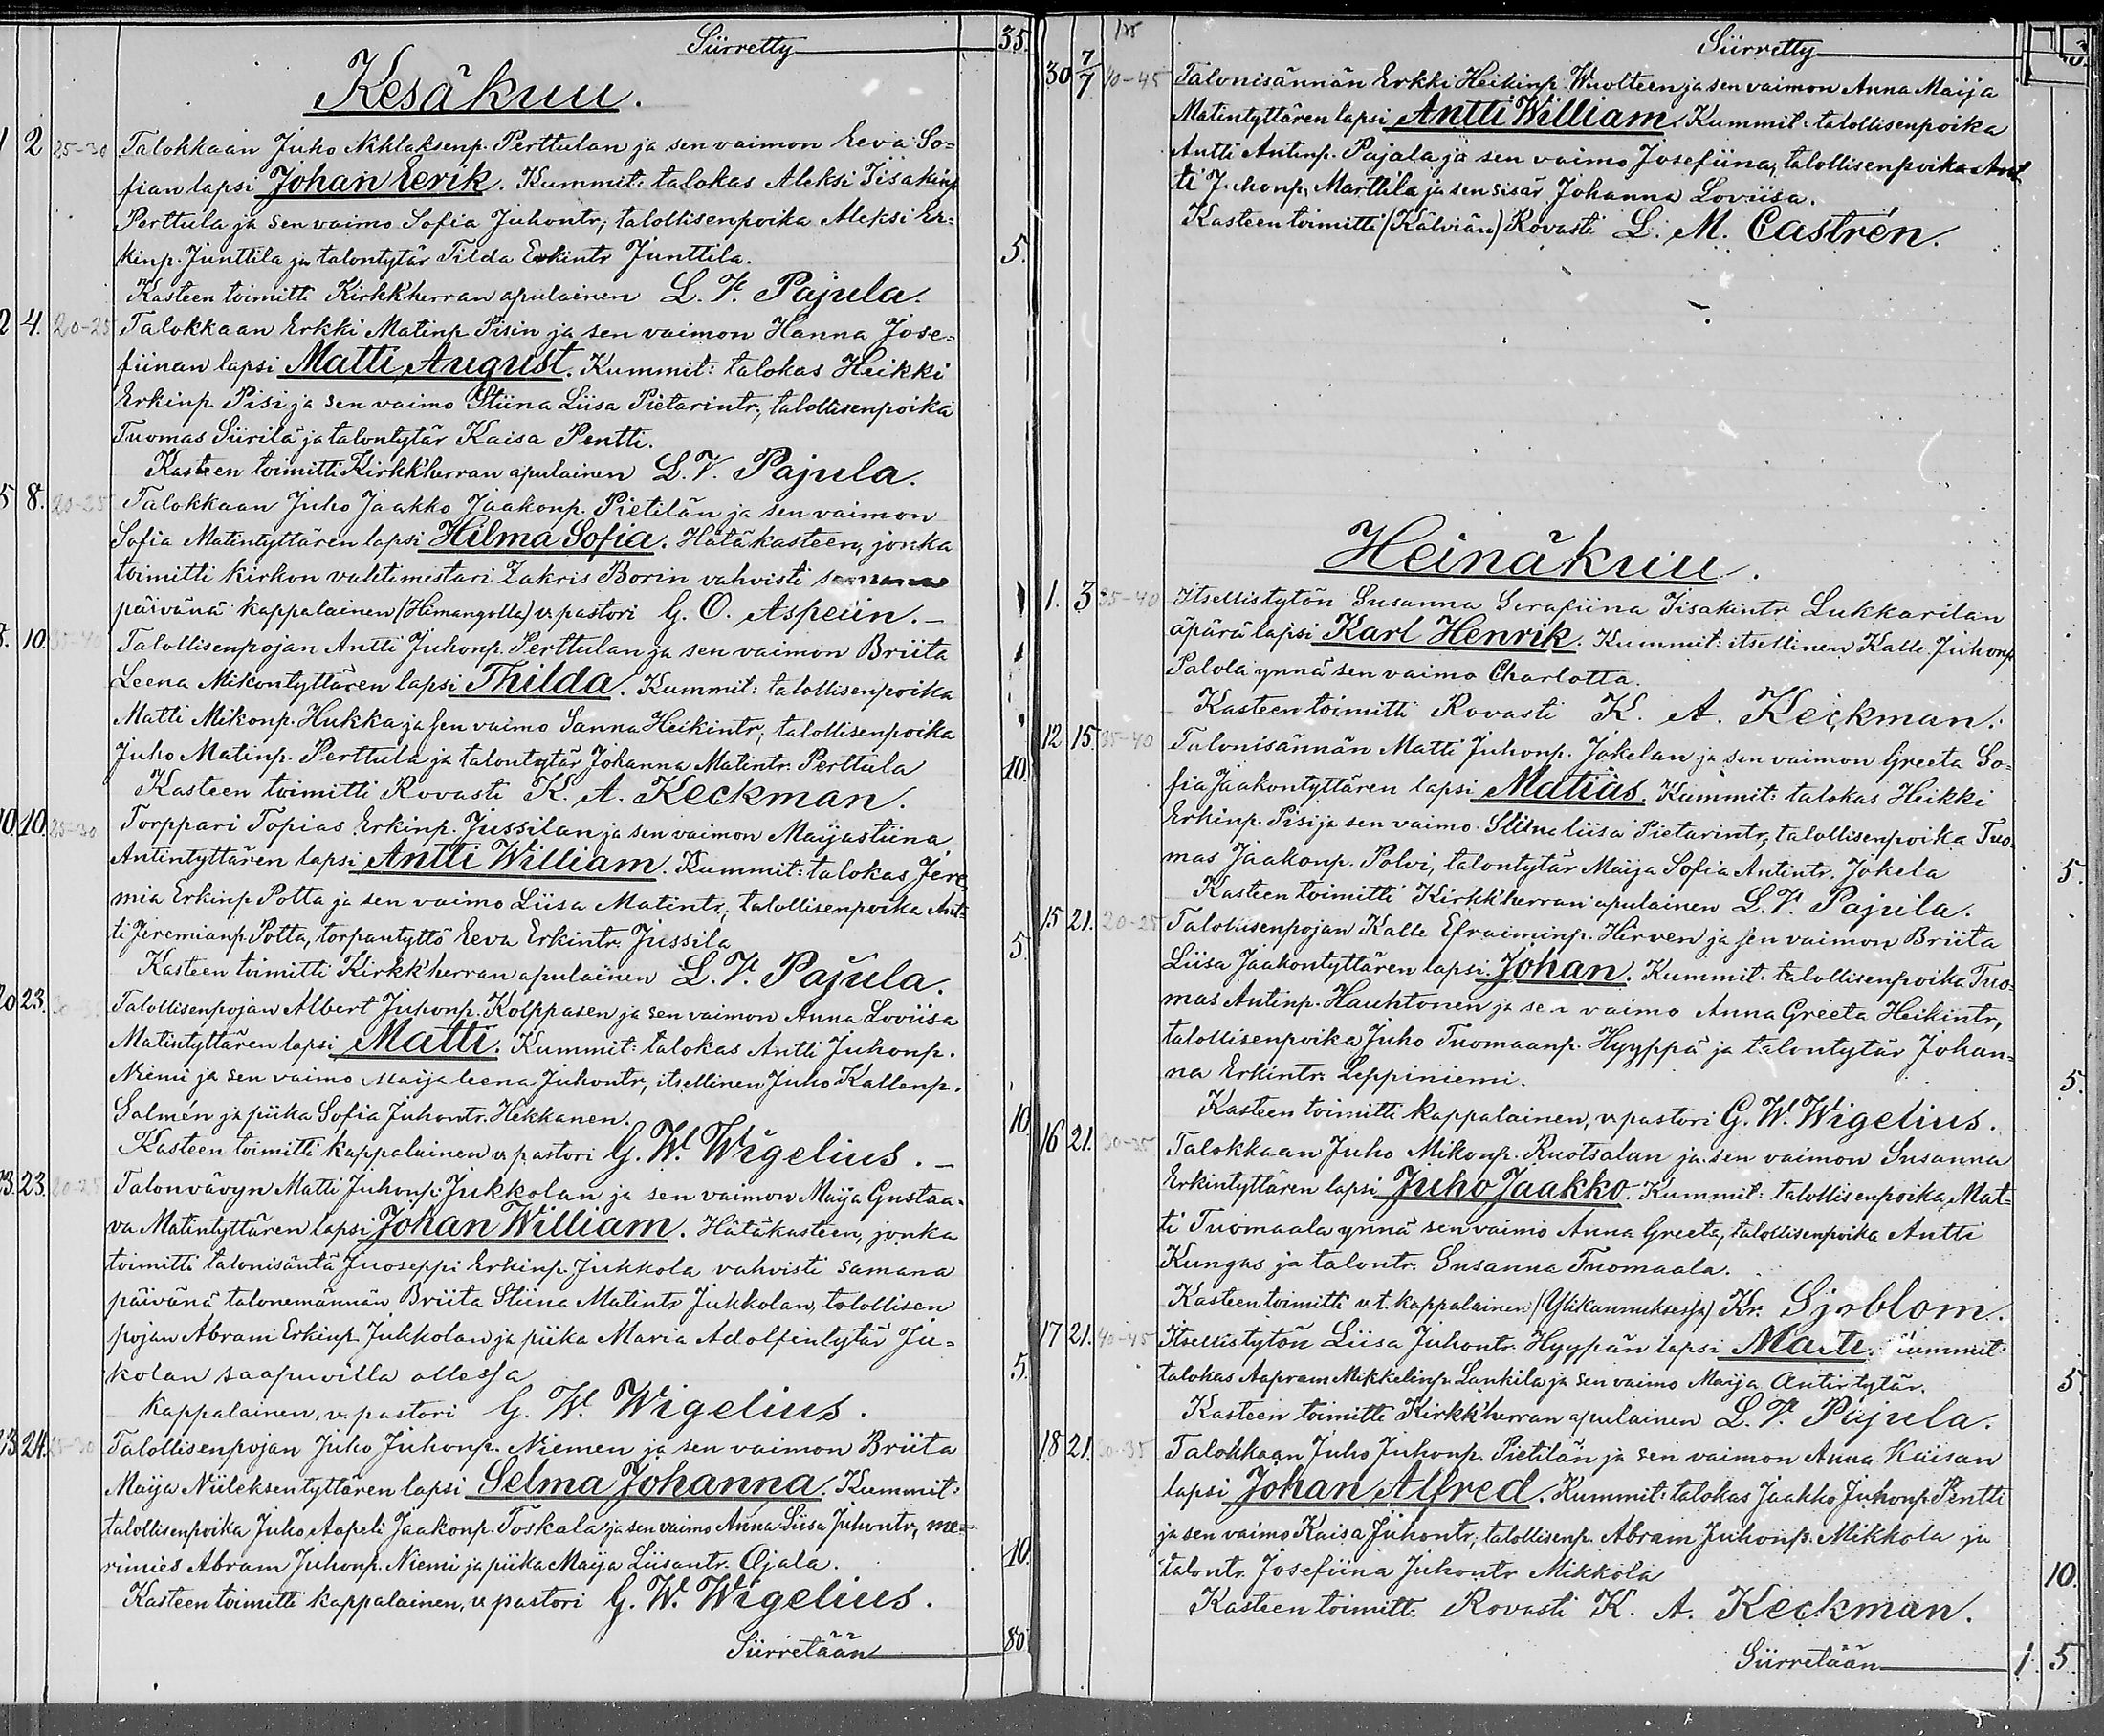 Siirretty 35.
Kesäkuu.
1 2 25-30 Talokkaan Juho Niklaksenp. Perttulan ja sen vaimon Eeva So=
fian lapsi Johan Eerik. Kummit: talokas Aleksi Iisakinp
Perttula ja sen vaimo Sofia Juhontr, talollisenpoika Aleksi Er=
kinp. Junttila ja talontytär Tilda Erkintr Junttila. 5.
Kasteen toimitti Kirkk'herran apulainen L. V. Pajula.
2 4. 20-25 Talokkaan Erkki Matinp Pisin ja sen vaimon Hanna Jose=
fiinan lapsi Matti August. Kummit: talokas Heikki
Erkinp. Pisi ja sen vaimo Stiina Liisa Pietarintr, talollisenpoika
Tuomas Siirilä ja talontytär Kaisa Pentti.
Kasteen toimitti Kirkk'herran apulainen L. V. Pajula.
5 8. 20-25 Talokkaan Juho Jaakko Jaakonp. Pietilän ja sen vaimon
Sofia Matintyttären lapsi Hilma Sofia. Hätäkasteen, jonka
toimitti kirkon vahtimestari Zakris Borin vahvisti samana
päivänä kappalainen (Himangolla) v. pastori G. O. Aspelin.-
8. 10. 35-40 Talollisenpojan Antti Juhonp. Perttulan ja sen vaimon Briita
Leena Mikontyttären lapsi Thilda. Kummit: talollisenpoika
Matti Mikonp. Hukka ja sen vaimo Sanna Heikintr, talollisenpoika
Juho Matinp. Perttula ja talontytär Johanna Matintr. Perttula 10.
Kasteen toimitti Rovasti K. A. Keckman.
10. 10. 25-30 Torppari Topias Erkinp. Jussilan ja sen vaimon Maijastiina
Antintyttären lapsi Antti William. Kummit: talokas Jere
mia Erkinp Potta ja sen vaimo Liisa Matintr, talollisenpoika Ant=
ti Jeremianp. Potta, torpantyttö Eeva Erkintr. Jussila 5.
Kasteen toimitti Kirkk'herran apulainen L. V. Pajula.
20 23. 30-35 Talollisenpojan Albert Juhonp. Kolppasen ja sen vaimon Anna Loviisa
Matintyttären lapsi Matti. Kummit: talokas Antti Juhonp.
Niemi ja sen vaimo Maija leena Juhontr, itsellinen Juho Kallenp.
Salmén ja piika Sofia Juhontr. Hekkanen. 10
Kasteen toimitti kappalainen v. pastori G. W. Wigelius.-
23. 23. 20-25 Talonvävyn Matti Juhonp. Jukkolan ja sen vaimon Maija Gustaa-
va Matintyttären lapsi Johan William. Hätäkasteen, jonka
toimitti talonisäntä Juoseppi Erkinp. Jukkola vahvisti samana
päivänä talonemännän Briita Stiina Matintr Jukkolan, talollisen
pojan Abram Erkinp. Jukkolan ja piika Maria Adolfintytär Ju=
kolan saapuvilla ollessa 5.
Kappalainen, v. pastori G. W. Wigelius.
23. 24. 25-30 Talollisenpojan Juho Juhonp. Niemen ja sen vaimon Briita
Maija Niileksentyttären lapsi Selma Johanna. Kummit:
talollisenpoika Juho Aapeli Jaakonp. Toskala ja sen vaimo Anna Liisa Juhontr, me=
rimies Abram Juhonp. Niemi ja piika Maija Liisantr. Ojala. 10.
Kasteen toimitti kappalainen, v. pastori G. W. Wigelius.
Siirretään 80
Siirretty
30 7/7 40-45 Talonisännän Erkki Heikinp. Wuolteen ja sen vaimon Anna Maija
Matintyttären lapsi Antti William. Kummit: talollisenpoika
Antti Antinp. Pajala ja sen vaimo Josefiina, talollisenpoika Ant
ti Juhonp. Marttila ja sen sisar Johanna Loviisa.
Kasteen toimitti (Kälviän) Rovasti L. M. Castrén.
Heinäkuu.
1. 3 35-40 Itsellistytön Susanna Serafiina Iisakintr Lukkarilan
äpärä lapsi Karl Henrik. Kummit: itsellinen Kalle Juhonp
Palola ynnä sen vaimo Charlotta.
Kasteen toimitti Rovasti K. A. Keckman.
12 15. 35-40 Talonisännän Matti Juhonp. Jokelan ja sen vaimon Greeta So=
fia Jaakontyttären lapsi Matias. Kummit: talokas Heikki
Erkinp. Pisi ja sen vaimo Stiina liisa Pietarintr, talollisenpoika Tuo
mas Jaakonp. Polvi, talontytär Maija Sofia Antintr. Jokela 5.
Kasteen toimitti Kirkk'herran apulainen L. V. Pajula.
15 21. 20-25 Talollisenpojan Kalle Efraiminp. Hirven ja sen vaimon Briita
Liisa Jaakontyttären lapsi Johan. Kummit: talollisenpoika Tuo=
mas Antinp. Hauhtonen ja sen vaimo Anna Greeta Heikintr,
talollisenpoika Juho Tuomaanp. Hyyppä ja talontytär Johan=
na Erkintr. Leppiniemi. 5.
Kasteen toimitti kappalainen, v. pastori G. W. Wigelius.
16 21. 30-35 Talokkaan Juho Mikonp. Ruotsalan ja sen vaimon Susanna
Erkintyttären lapsi Juho Jaakko. Kummit: talollisenpoika Mat=
ti Tuomaala ynnä sen vaimo Anna Greeta, talollisenpoika Antti
Kungas ja talontr. Susanna Tuomaala.
Kasteen toimitti v. t. kappalainen (Ylikannuksessa) Kr. Sjöblom.
17 21. 40-45 Itsellistytön Liisa Juhontr. Hyypän lapsi Matti. Kummit:
talokas Aapram Mikkelinp. Lankila ja sen vaimo Maija Antintytär. 5
Kasteen toimitti Kirkk'herran apulainen L. V. Pajula.
18 21. 30-35 Talokkaan Juho Juhonp. Pietilän ja sen vaimon Anna Kaisan
lapsi Johan Alfred. Kummit: talokas Jaakko Juhonp. Pentti
ja sen vaimo Kaisa Juhontr, talollisenp. Abram Juhonp. Mikkola ja
talontr. Josefiina Juhontr Mikkola 10.
Kasteen toimitt. Rovasti K. A. Keckman.
Siirretään 1. 5.